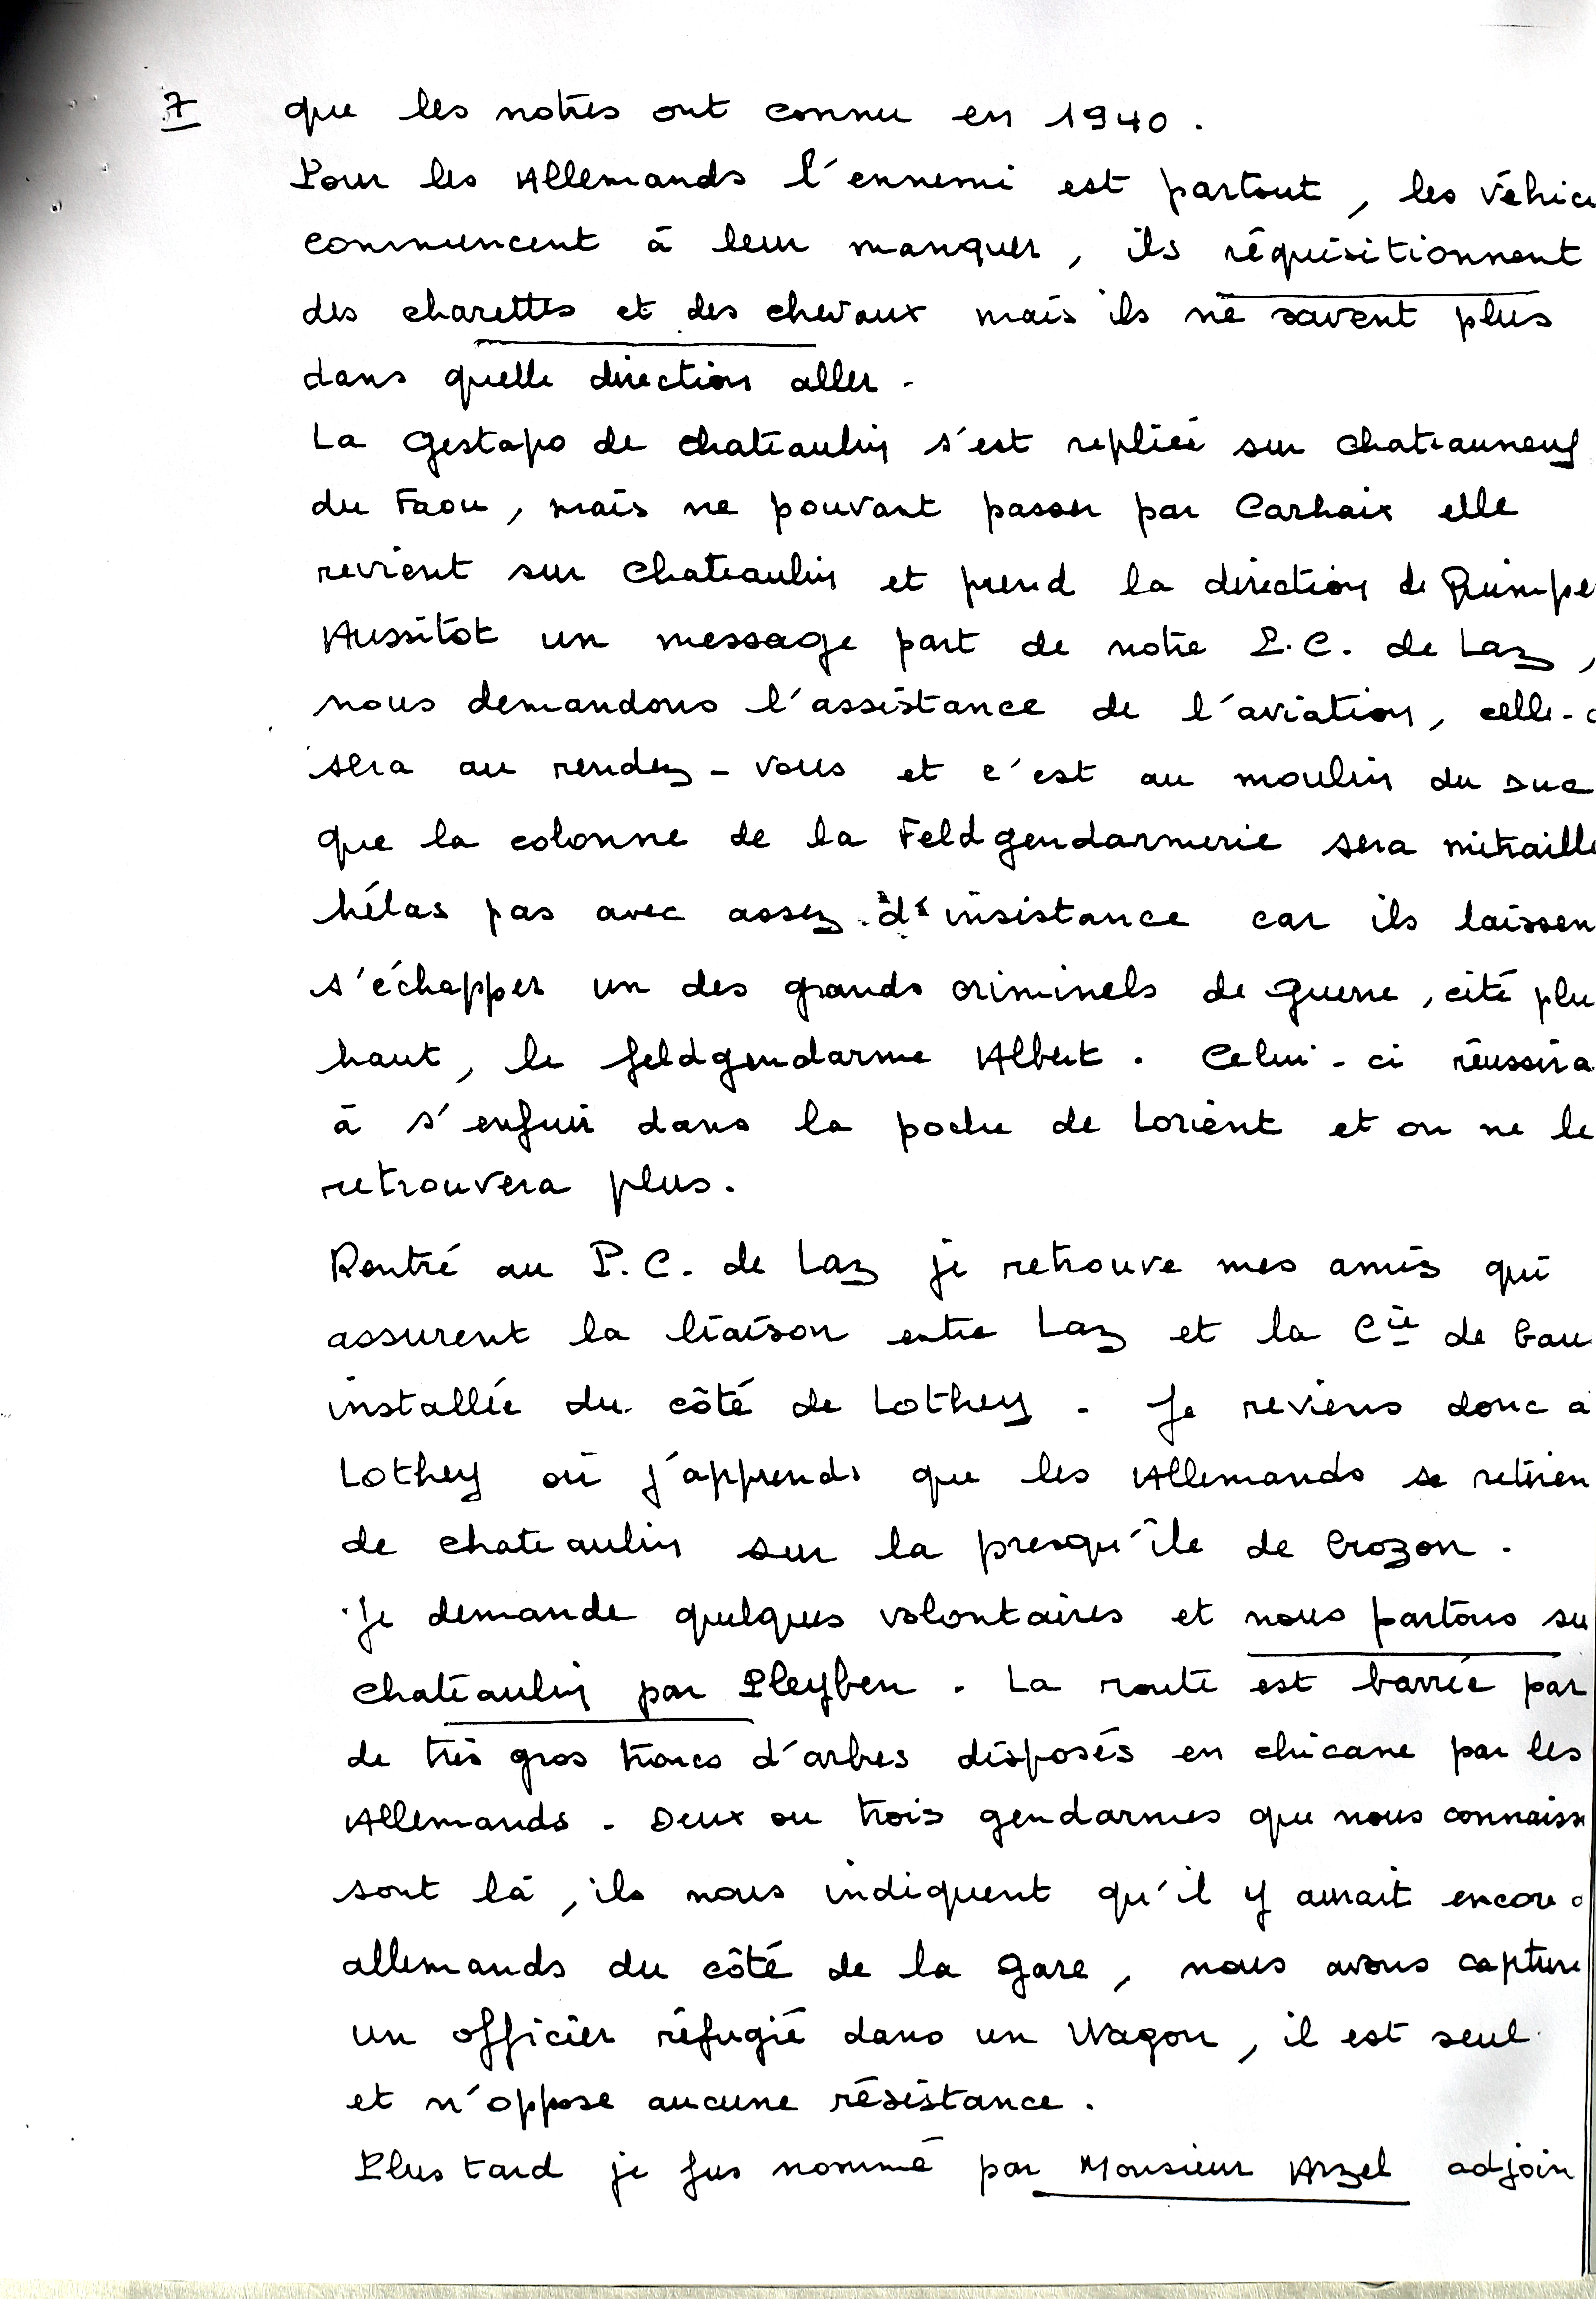 7 que les notres ont connu en 1940.
Pour les Allemands l'ennemi est partout, les véhicu
commencent à leur manquer, ils réquisitionnent
des charettes et des chevaux mais ils ne savent plus
dans quelle direction aller.
La Gestapo de chateaulin s'est repliée sur chateauneuf
du Faou, mais ne pouvant passer par Carhaix elle
revient sur chateaulin et prend la direction de Quimpe
Aussitôt un message part de notre P.C. de Laz,
nous demandons l'assistance de l'aviation, celle-c
sera au rendez-vous et c'est au moulin du Duc
que la colonne de la Feldgendarmerie sera mitraillé
hélas pas avec assez d'insistance car ils laissen
s'échapper un des grands criminels de guerre, cité plu
haut, le feldgendarme Albert. Celui-ci réussira
à s'enfuir dans la poche de Lorient et on ne le
retrouvera plus.
Rentré au P.C. de Laz je retrouve mes amis qui
assurent la liaison entre Laz et la Cie de Gau
installée du côté de Lothey. Je reviens donc à
Lothey où j'apprends que les Allemands se retiren
de chateaulin sur la presqu'île de Crozon.
Je demande quelques volontaires et nous partons su
chateaulin par Pleyben. La route est barrée par
de très gros troncs d'arbres disposés en chicane par les
Allemands. Deux ou trois gendarmes que nous connaiss
sont là, ils nous indiquent qu'il y aurait encore d
allemands du côté de la gare, nous avons capturé
un officier réfugié dans un Wagon, il est seul
et n'oppose aucune résistance.
Plus tard je fus nommé par Monsieur Arzel adjoin